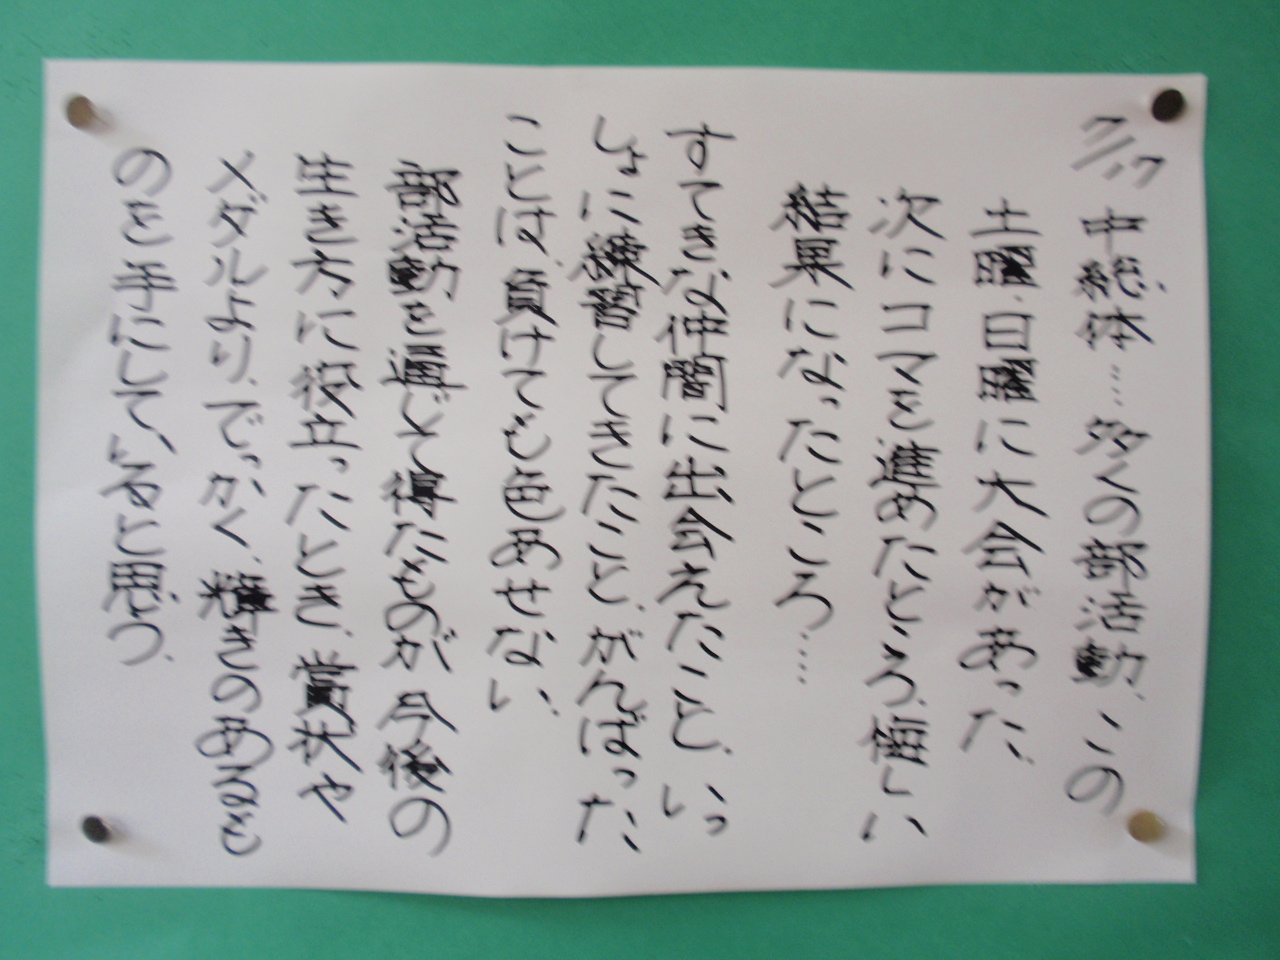 7/17 中総体……多くの部活動、この
土曜、日曜に大会があった。
次にコマを進めたところ、悔しい
結果になったところ……
すてきな仲間に出会えたこと、いっ
しょに練習してきたこと、がんばった
ことは、負けても色あせない。
部活動を通じて得たものが今後の
生き方に役立ったとき、賞状や
メダルより、でっかく、輝きのあるも
のを手にしていると思う。